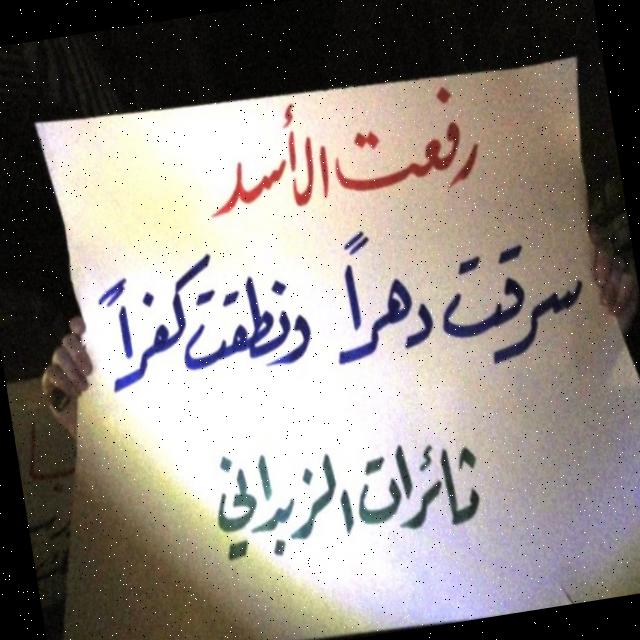 رفعت الأسد
سرقت دهراً ونطقت كفراً
ثائرات الزبداني